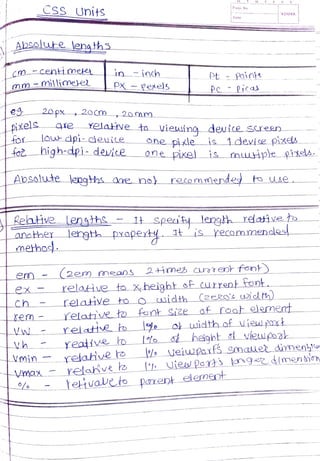 CSS Units
Page No.
Date
Absolute lengths
cm - centimeter in - inch Pt - Points
mm - millimeter px - pexels Pc - Picas
eg 20px , 20cm , 20mm
pixels are relative to viewing device screen
for low-dpi-device one pixle is 1 device pixels
for high-dpi-device one pixel is multiple pixels.
Absolute lengths are not recommended to use.
Relative lengths - It specify length relative to
another length property. It is recommended
method.
em - (2em means 2 times current font)
ex - relative to x height of current font.
ch - relative to 0 width (zero's width)
rem - relative to font size of root element
vw - relative to 1% of width of viewport
vh - realtive to 1% of height of viewport
vmin - relative to 1% veiwport's smaller dimention
vmax - relative to 1% viewport's larger dimension
% - relative to parent element